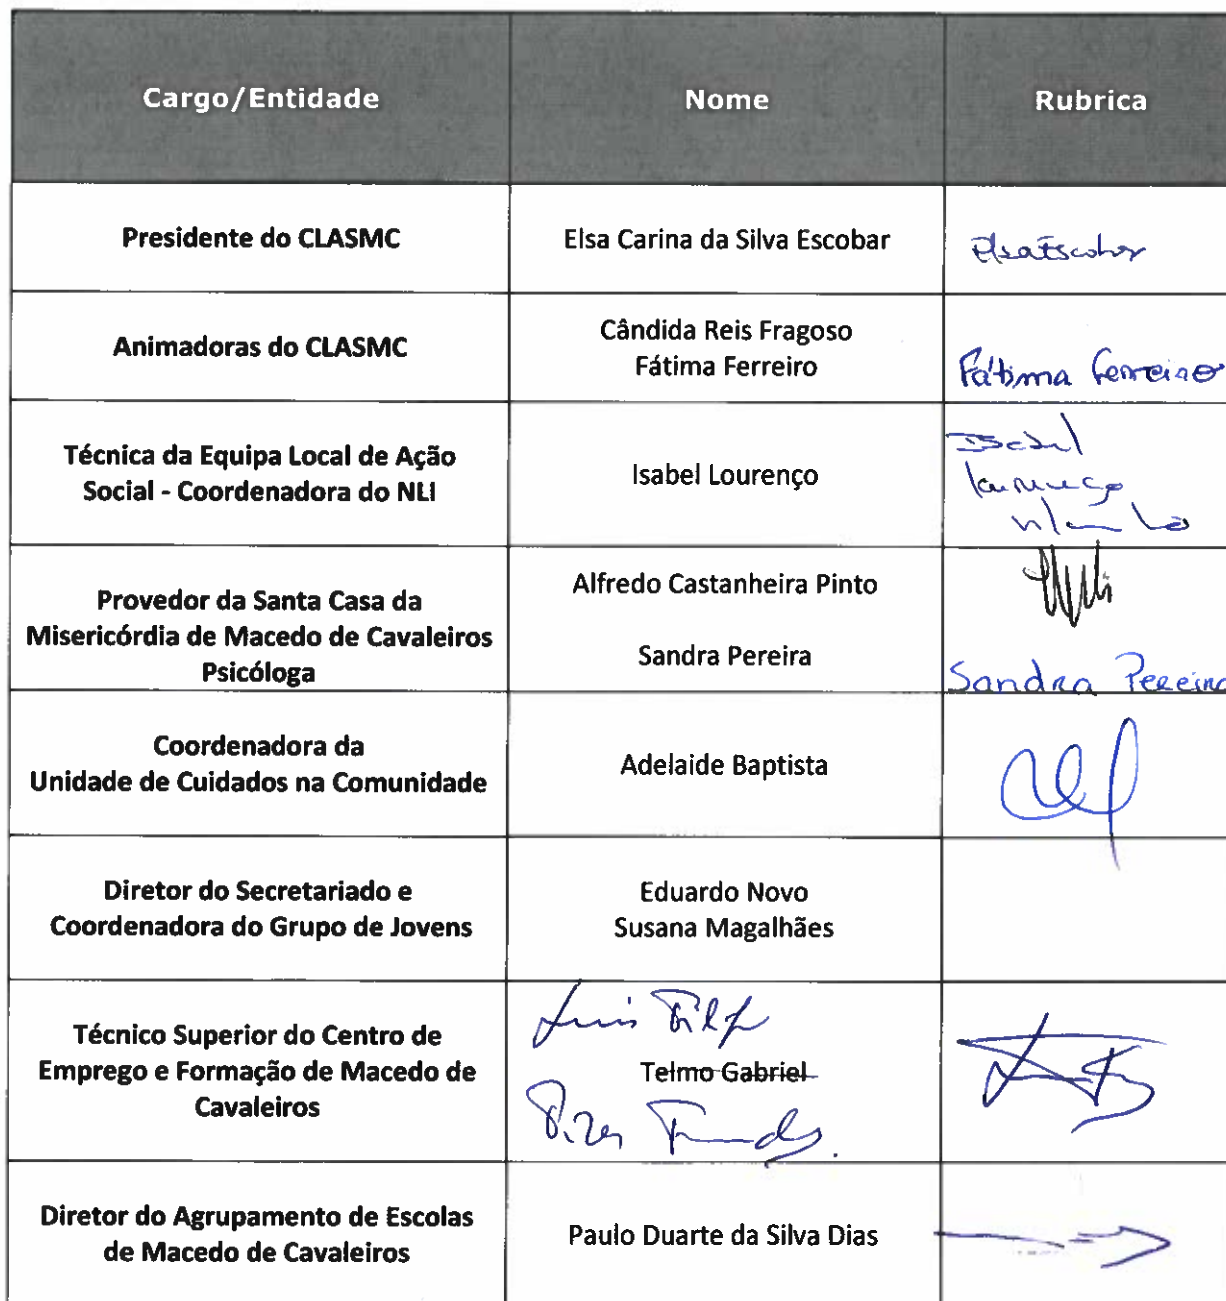 Cargo/Entidade
Nome
Rubrica
Presidente do CLASMC
Elsa Carina da Silva Escobar
Elsa Escobar
Animadoras do CLASMC
Cândida Reis Fragoso
Fátima Ferreiro
Fátima Ferreiro
Técnica da Equipa Local de Ação
Social - Coordenadora do NLI
Isabel Lourenço
Isabel
Lourenço
Provedor da Santa Casa da
Misericórdia de Macedo de Cavaleiros
Psicóloga
Alfredo Castanheira Pinto
Sandra Pereira
Sandra Pereira
Coordenadora da
Unidade de Cuidados na Comunidade
Adelaide Baptista
Diretor do Secretariado e
Coordenadora do Grupo de Jovens
Eduardo Novo
Susana Magalhães
Técnico Superior do Centro de
Emprego e Formação de Macedo de
Cavaleiros
Luis
Telmo Gabriel
Diretor do Agrupamento de Escolas
de Macedo de Cavaleiros
Paulo Duarte da Silva Dias